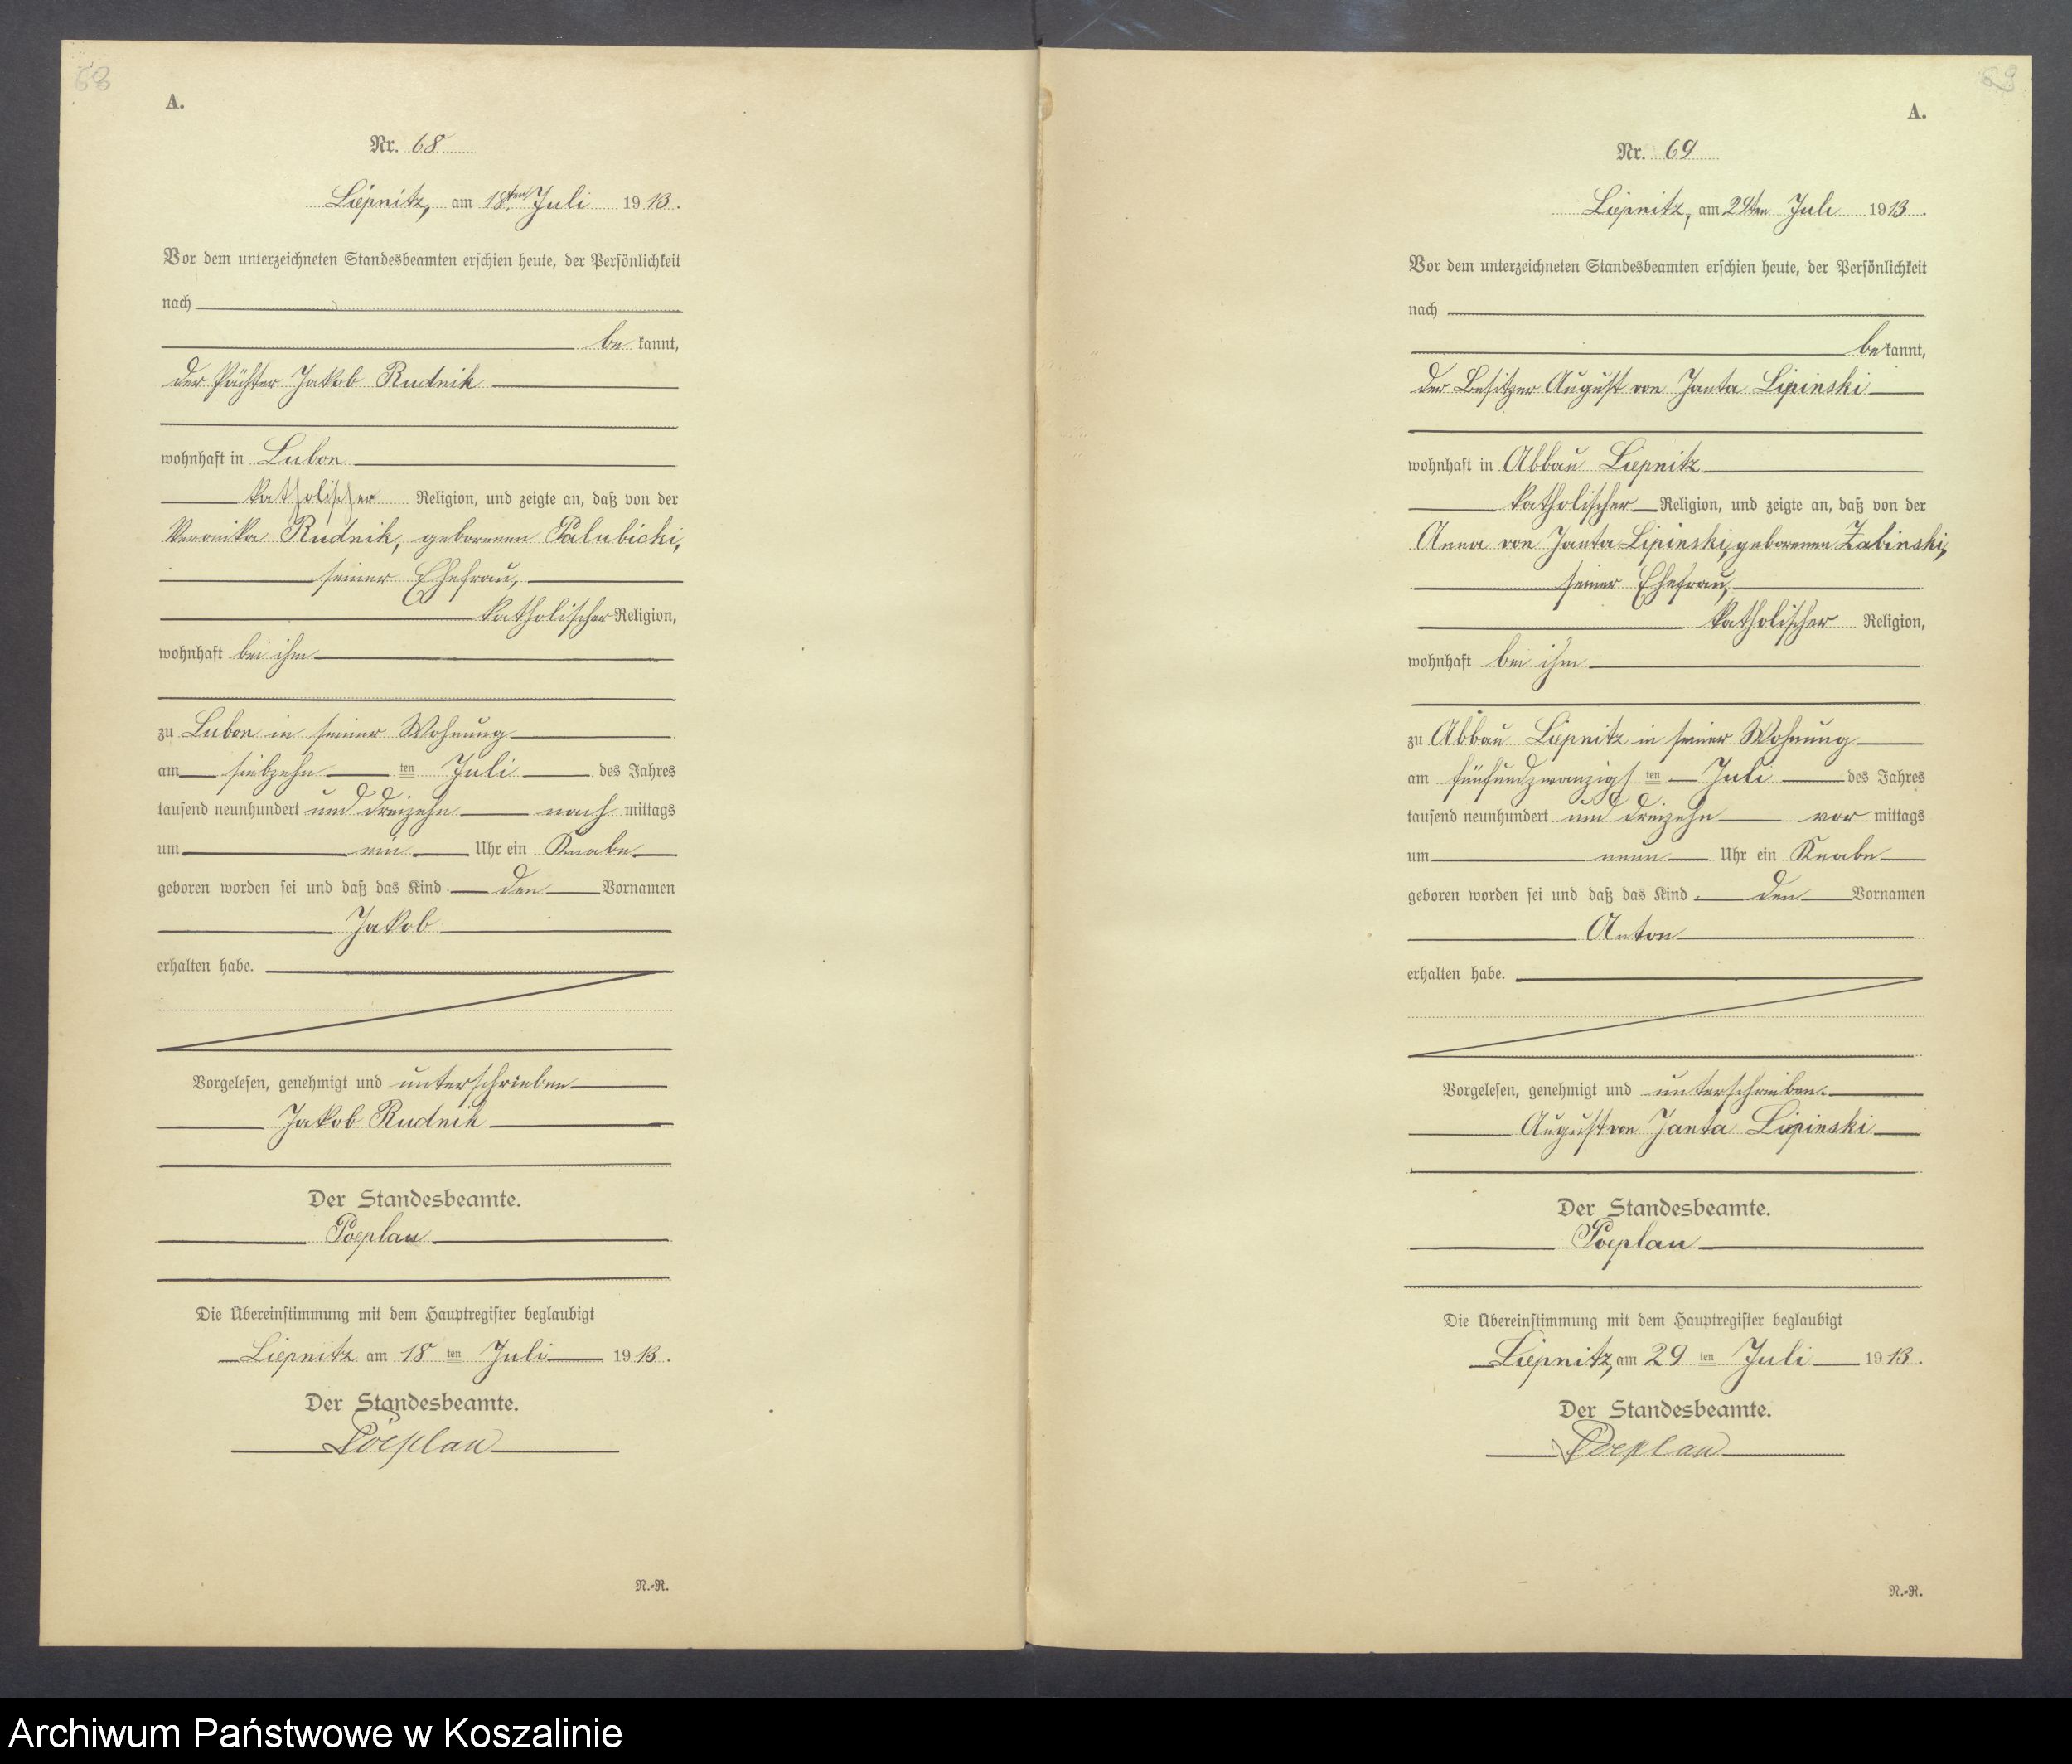 68
A.
Nr. 68
Liepnitz, am 18ten Juli 1913.
Vor dem unterzeichneten Standesbeamten erschien heute, der Persönlichkeit
nach
be kannt,
der Pächter Jakob Rudnik
wohnhaft in Lubon
katholischer Religion, und zeigte an, daß von der
Veronika Rudnik, geborenen Palubicki,
seiner Ehefrau,
katholischer Religion,
wohnhaft bei ihm
zu Lubon in seiner Wohnung
am siebzehn ten Juli des Jahres
tausend neunhundert und dreizehn nach mittags
um ein Uhr ein Knabe
geboren worden sei und daß das Kind den Vornamen
Jakob
erhalten habe.
Vorgelesen, genehmigt und unterschrieben
Jakob Rudnik
Der Standesbeamte.
Poeplau
Die Übereinstimmung mit dem Hauptregister beglaubigt
Liepnitz am 18 ten Juli 1913.
Der Standesbeamte.
Poeplau
N.-R.
69
A.
Nr. 69
Liepnitz, am 29ten Juli 1913.
Vor dem unterzeichneten Standesbeamten erschien heute, der Persönlichkeit
nach
be kannt,
der Besitzer August von Janta Lipinski
wohnhaft in Abbau Liepnitz
katholischer Religion, und zeigte an, daß von der
Anna von Janta Lipinski, geborenen Zabinski,
seiner Ehefrau,
katholischer Religion,
wohnhaft bei ihm
zu Abbau Liepnitz in seiner Wohnung
am fünfundzwanzigs ten Juli des Jahres
tausend neunhundert und dreizehn vor mittags
um neun Uhr ein Knabe
geboren worden sei und daß das Kind den Vornamen
Anton
erhalten habe.
Vorgelesen, genehmigt und unterschrieben.
August von Janta Lipinski
Der Standesbeamte.
Poeplau
Die Übereinstimmung mit dem Hauptregister beglaubigt
Liepnitz, am 29 ten Juli 1913.
Der Standesbeamte.
Poeplau
N.-R.
Archiwum Państwowe w Koszalinie